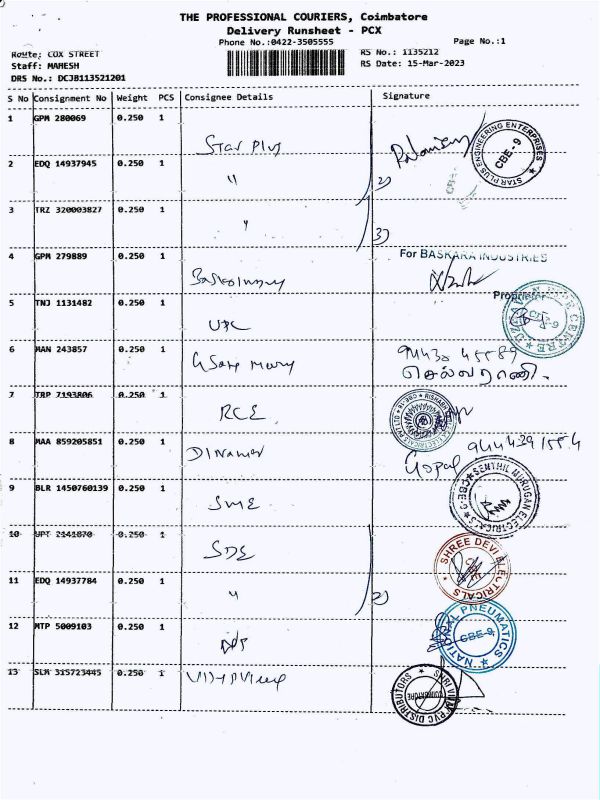 THE PROFESSIONAL COURIERS, Coimbatore
Delivery Runsheet - PCX
Phone No.:0422-3505555
Page No.:1
Route: COX STREET
RS No.: 1135212
Staff: MAHESH
RS Date: 15-Mar-2023
DRS No.: DCJB113521201
S No Consignment No Weight PCS Consignee Details Signature
1 GPM 280069 0.250 1
Star Plus
STAR PLUS ENGINEERING ENTERPRISES ★ CBE-9
2 EDQ 14937945 0.250 1
" 2)
3 TRZ 320003827 0.250 1
" 3)
4 GPM 279889 0.250 1
For BASKARA INDUSTRIES
5 TNJ 1131482 0.250 1
6 MAN 243857 0.250 1
செல்வராணி.
7 TRP 7193806 0.250 1
RCE
8 MAA 859205851 0.250 1
Gopal
9 BLR 1450760139 0.250 1
SME
SENTHIL MURUGAN ELECTRICALS ★ CBE-9
10 UPT 2141870 0.250 1
SDE
SHREE DEVI ELECTRICALS ★
11 EDQ 14937784 0.250 1
" 2)
12 MTP 5009103 0.250 1
NATIONAL PNEUMATICS ★ CBE-9
13 SLM 315723445 0.250 1
SHRI VIJAY PVC DISTRIBUTORS ★ COIMBATORE